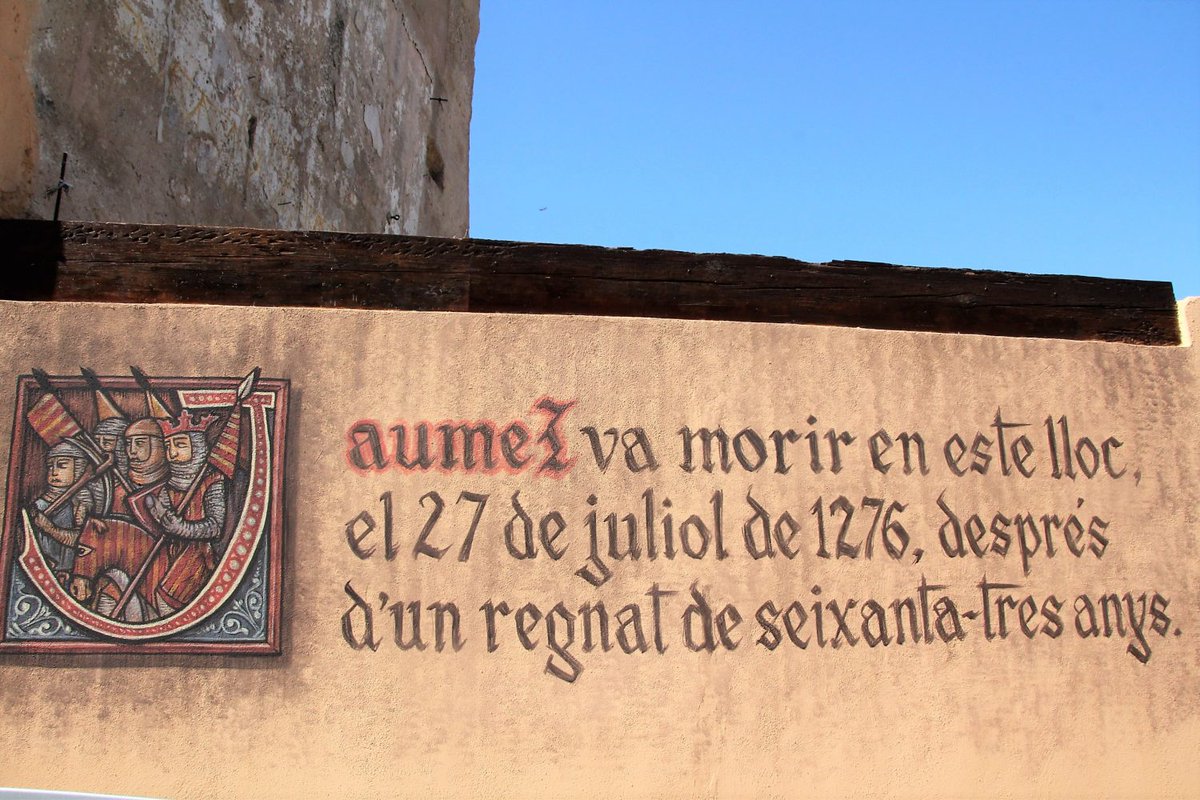 Jaume I va morir en este lloc,
el 27 de juliol de 1276, després
d'un regnat de seixanta-tres anys.